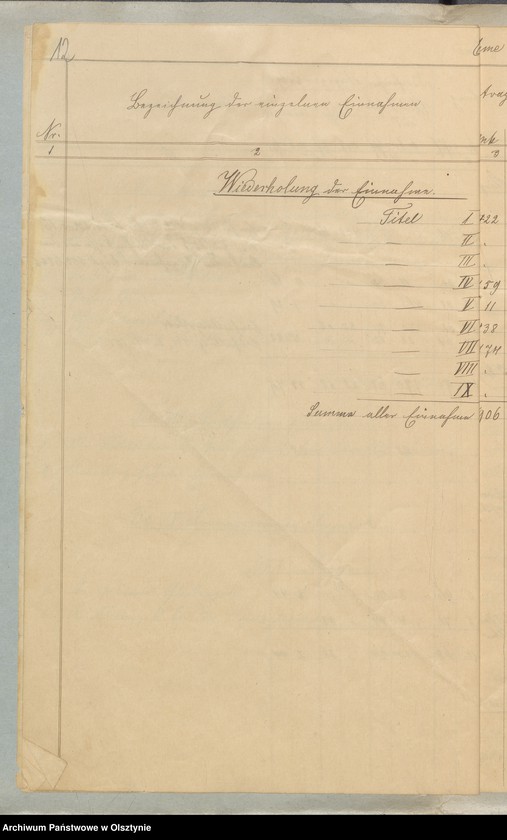 12
Bezeichnung der einzelnen Einnahmen
Nr.
1 2 3
Wiederholung der Einnahme.
Titel I 22
— II .
— III .
— IV 59
— V 11
— VI 38
— VII 74
— VIII .
— IX .
Summa aller Einnahme 106
Archiwum Państwowe w Olsztynie